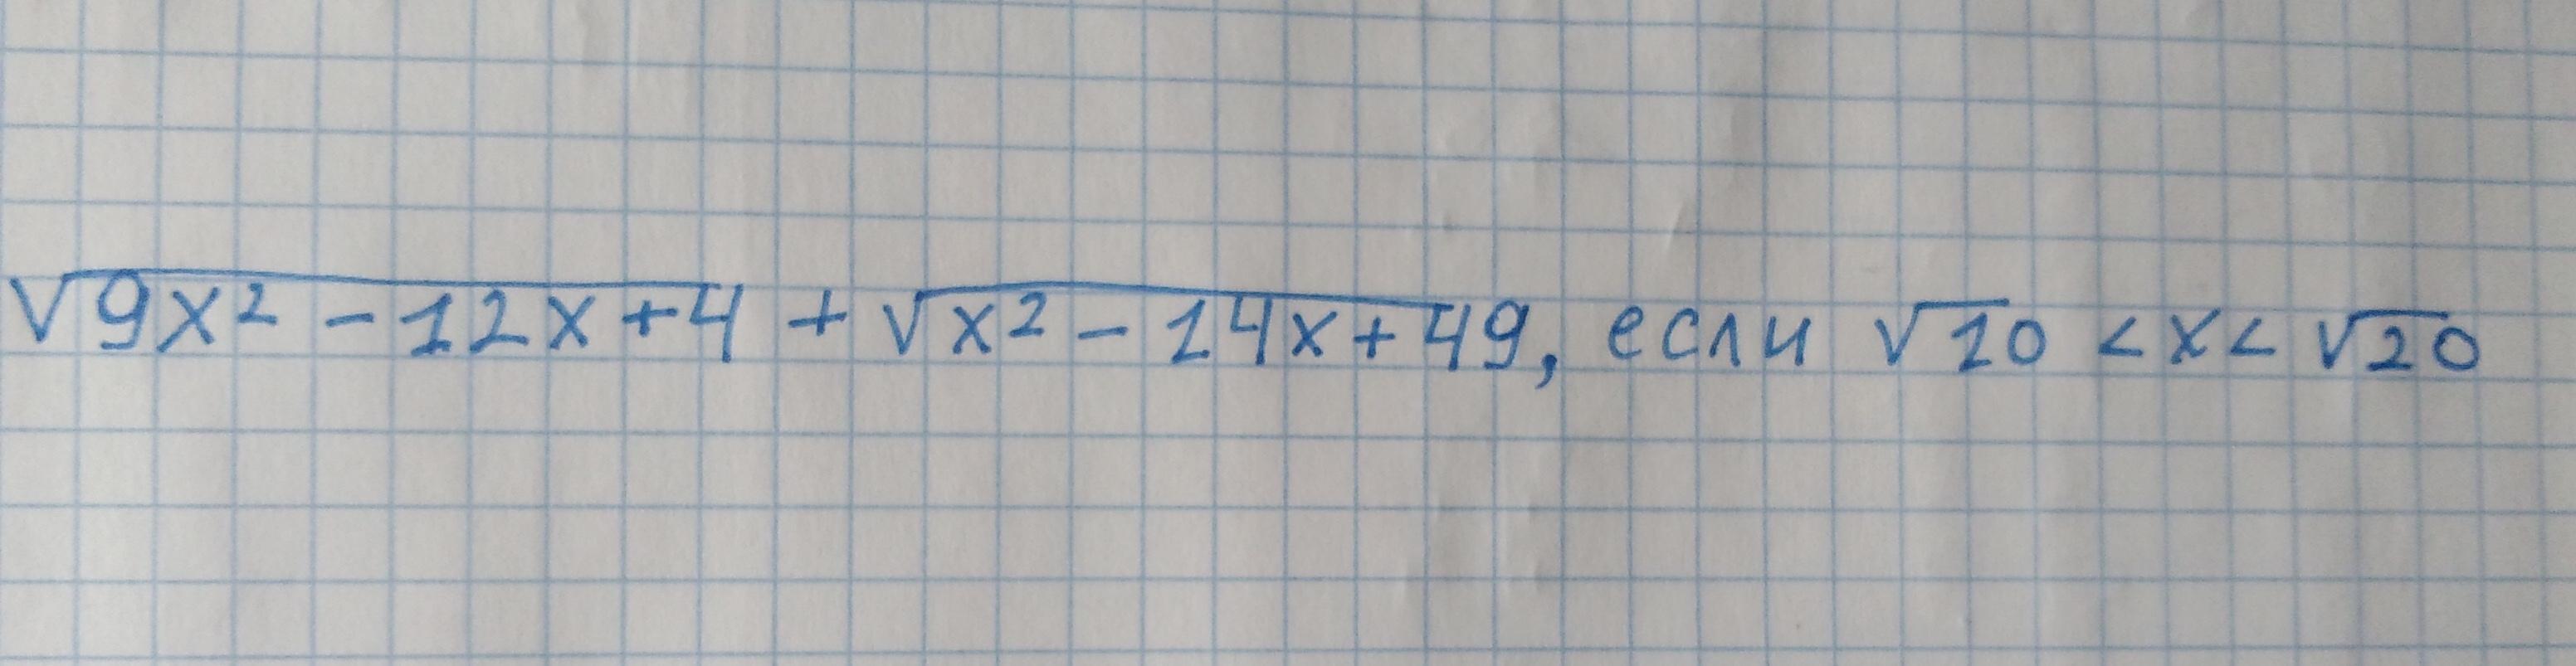 √(9x² - 12x + 4) + √(x² - 14x + 49), если √10 < x < √20